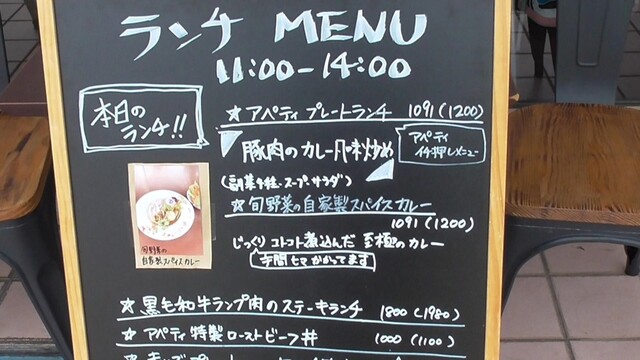 ランチ MENU
11:00-14:00
本日の
ランチ!!
☆ アペティ プレートランチ 1091(1200)
豚肉のカレー風味炒め
アペティ
イチ押しメニュー
(副菜2種・スープ・サラダ)
☆ 旬野菜の自家製スパイスカレー
1091(1200)
じっくりコトコト煮込んだ至極のカレー
手間ヒマかかってます
旬野菜の
自家製スパイスカレー
☆ 黒毛和牛ランプ肉のステーキランチ 1800(1980)
☆ アペティ特製ローストビーフ丼 1000(1100)